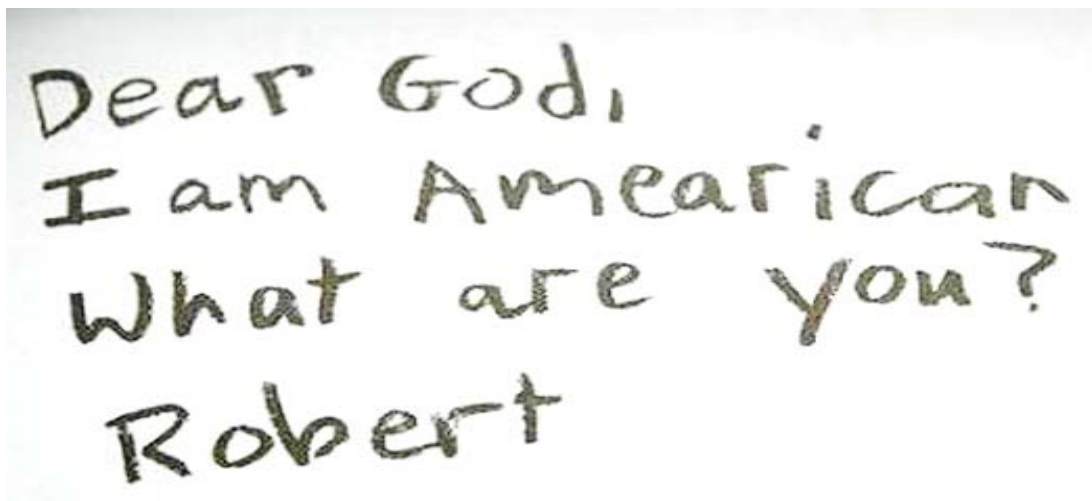 Dear God,
I am Amearican
What are you?
Robert